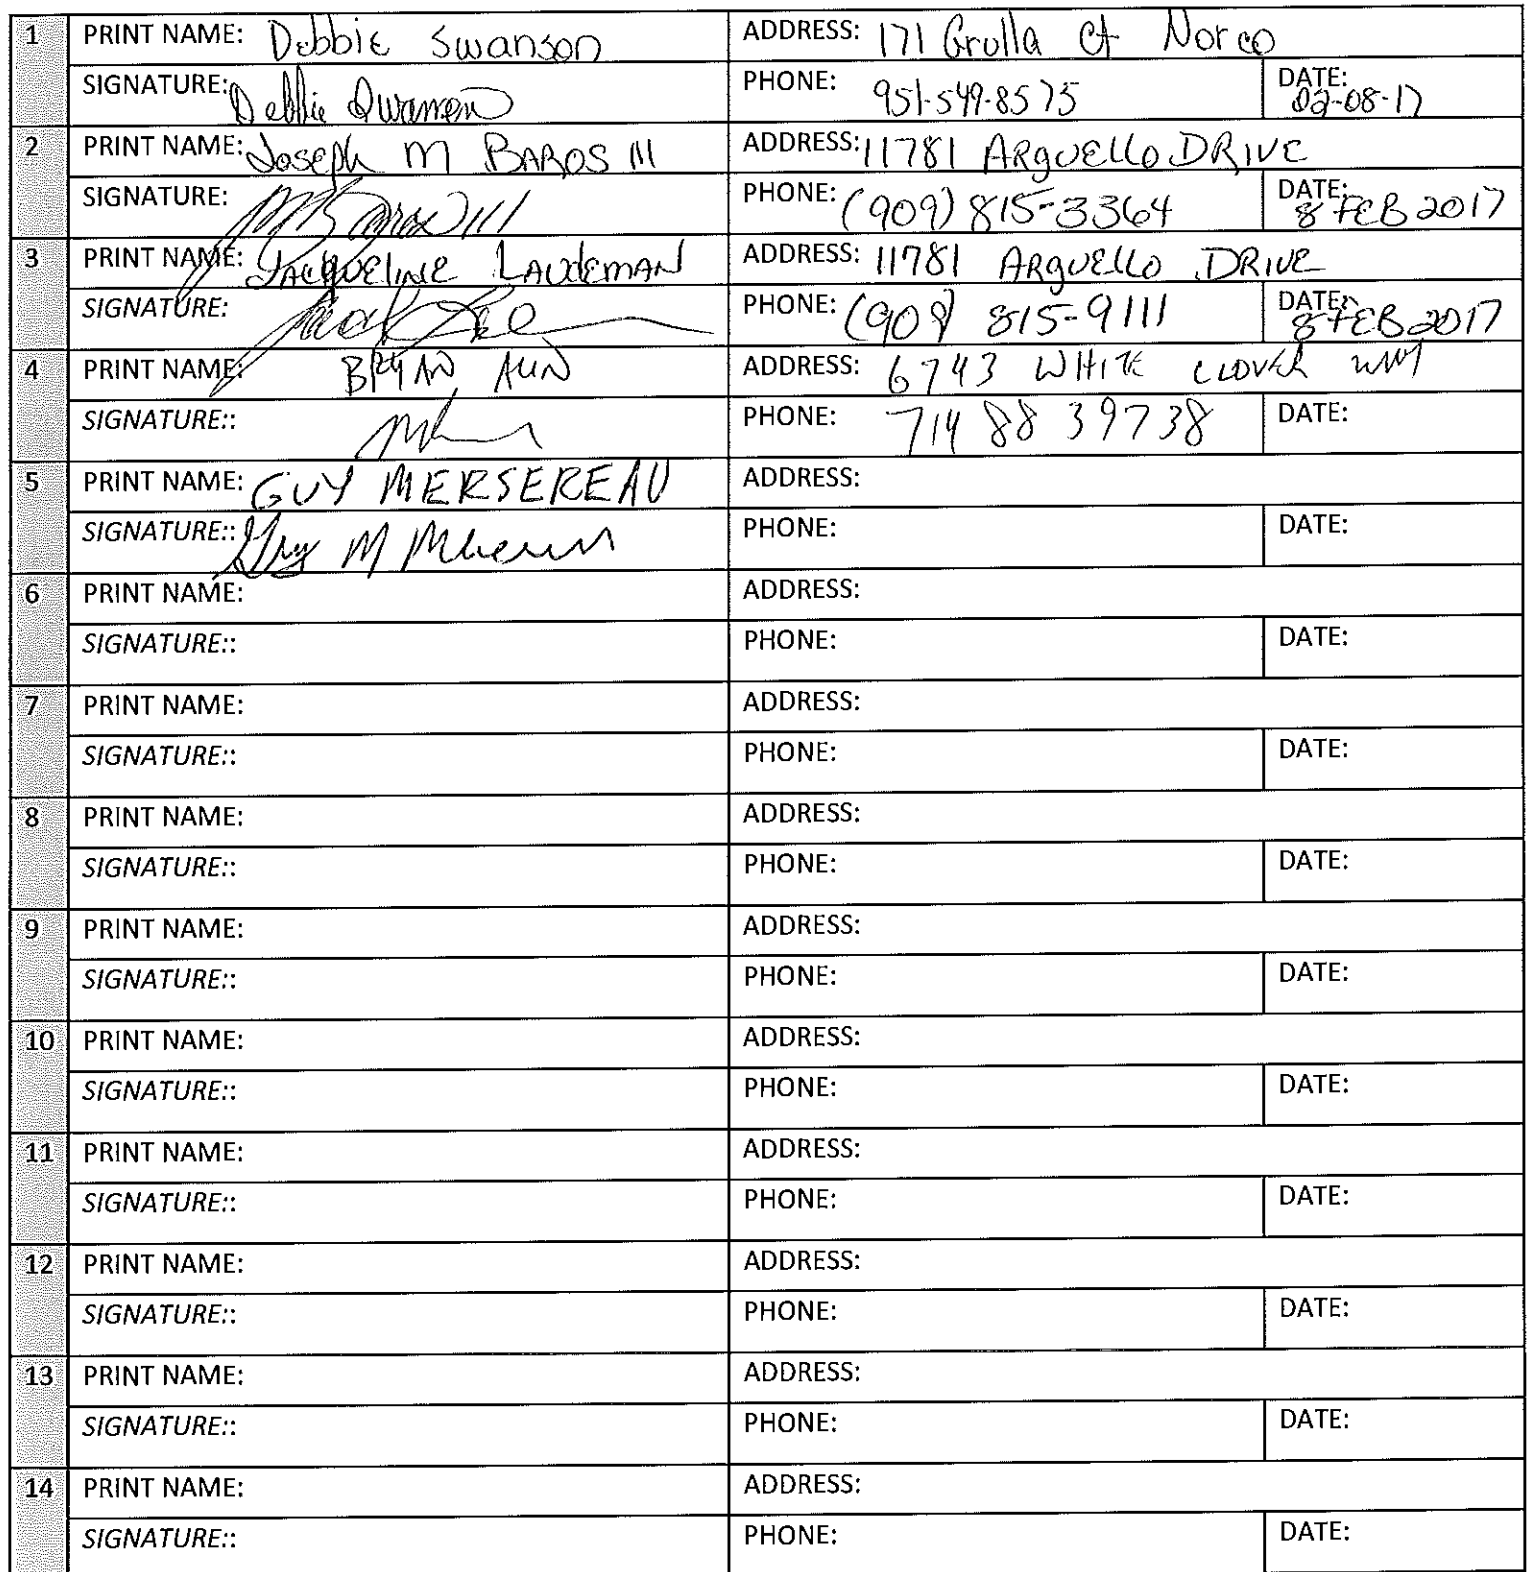 1 PRINT NAME: Debbie Swanson ADDRESS: 171 Grulla Ct Norco
SIGNATURE: Debbie Swanson PHONE: 951-549-8575 DATE: 02-08-17
2 PRINT NAME: Joseph M BAROS III ADDRESS: 11781 ARGUELLO DRIVE
SIGNATURE: PHONE: (909) 815-3364 DATE: 8 FEB 2017
3 PRINT NAME: JACQUELINE LAUDEMAN ADDRESS: 11781 ARGUELLO DRIVE
SIGNATURE: PHONE: (909) 815-9111 DATE: 8 FEB 2017
4 PRINT NAME: BRYAN ADDRESS: 6743 WHITE CLOVER WAY
SIGNATURE:: PHONE: 714 88 39738 DATE:
5 PRINT NAME: GUY MERSEREAU ADDRESS:
SIGNATURE:: Guy M PHONE: DATE:
6 PRINT NAME: ADDRESS:
SIGNATURE:: PHONE: DATE:
7 PRINT NAME: ADDRESS:
SIGNATURE:: PHONE: DATE:
8 PRINT NAME: ADDRESS:
SIGNATURE:: PHONE: DATE:
9 PRINT NAME: ADDRESS:
SIGNATURE:: PHONE: DATE:
10 PRINT NAME: ADDRESS:
SIGNATURE:: PHONE: DATE:
11 PRINT NAME: ADDRESS:
SIGNATURE:: PHONE: DATE:
12 PRINT NAME: ADDRESS:
SIGNATURE:: PHONE: DATE:
13 PRINT NAME: ADDRESS:
SIGNATURE:: PHONE: DATE:
14 PRINT NAME: ADDRESS:
SIGNATURE:: PHONE: DATE: